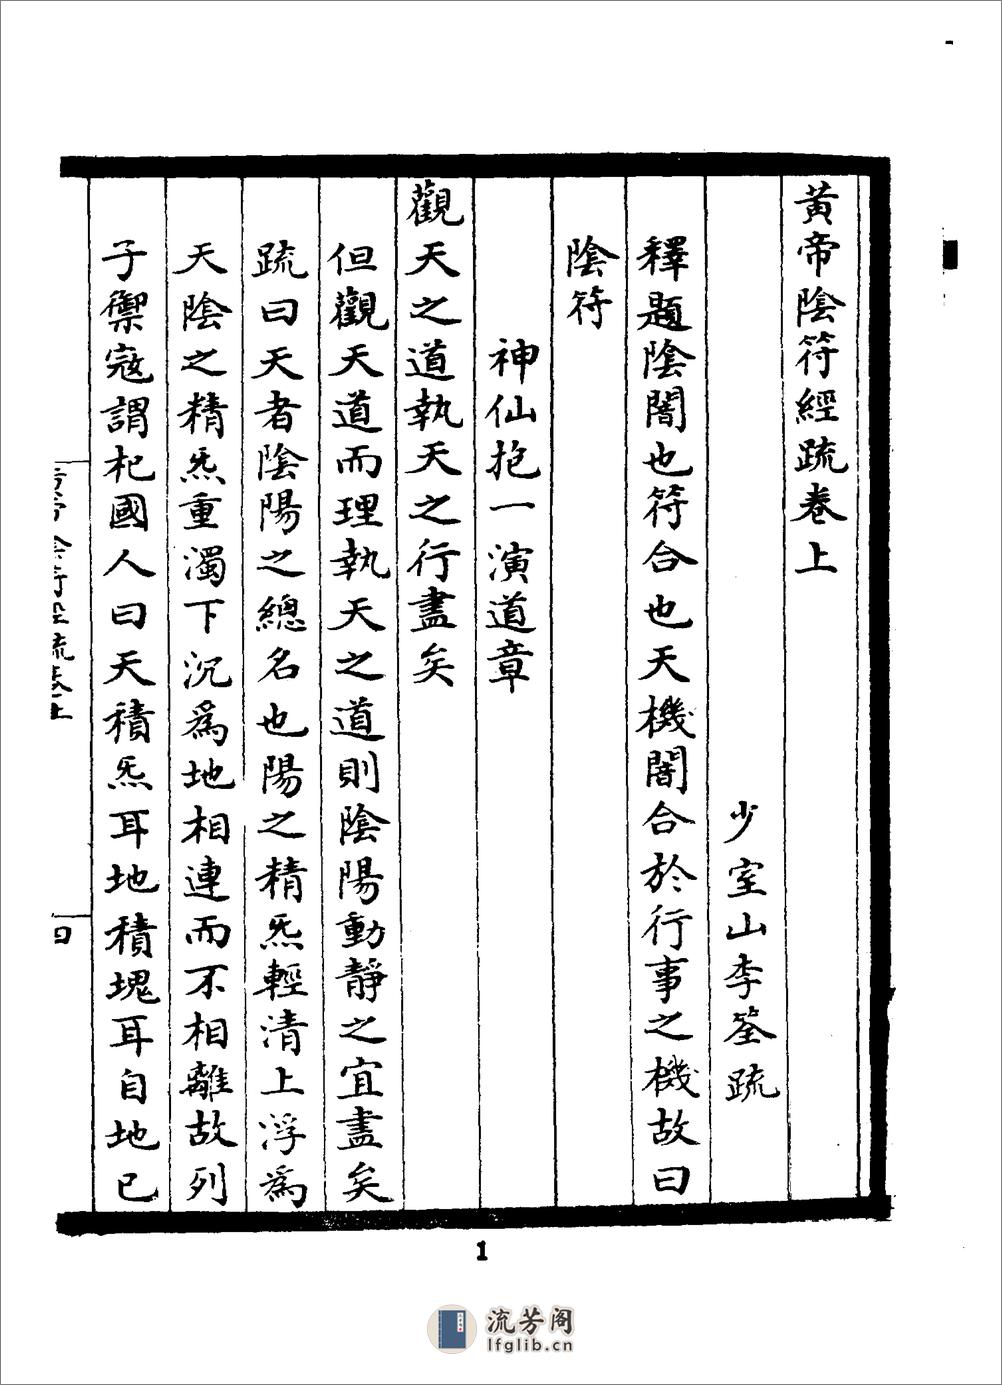 黃帝陰符經疏卷上
少室山李筌疏
釋題陰闇也符合也天機闇合於行事之機故曰
陰符
神仙抱一演道章
觀天之道執天之行盡矣
但觀天道而理執天之道則陰陽動靜之宜盡矣
疏曰天者陰陽之總名也陽之精炁輕清上浮為
天陰之精炁重濁下沉為地相連而不相離故列
子禦寇謂杞國人曰天積炁耳地積塊耳自地已
1
流芳阁
lfglib.cn